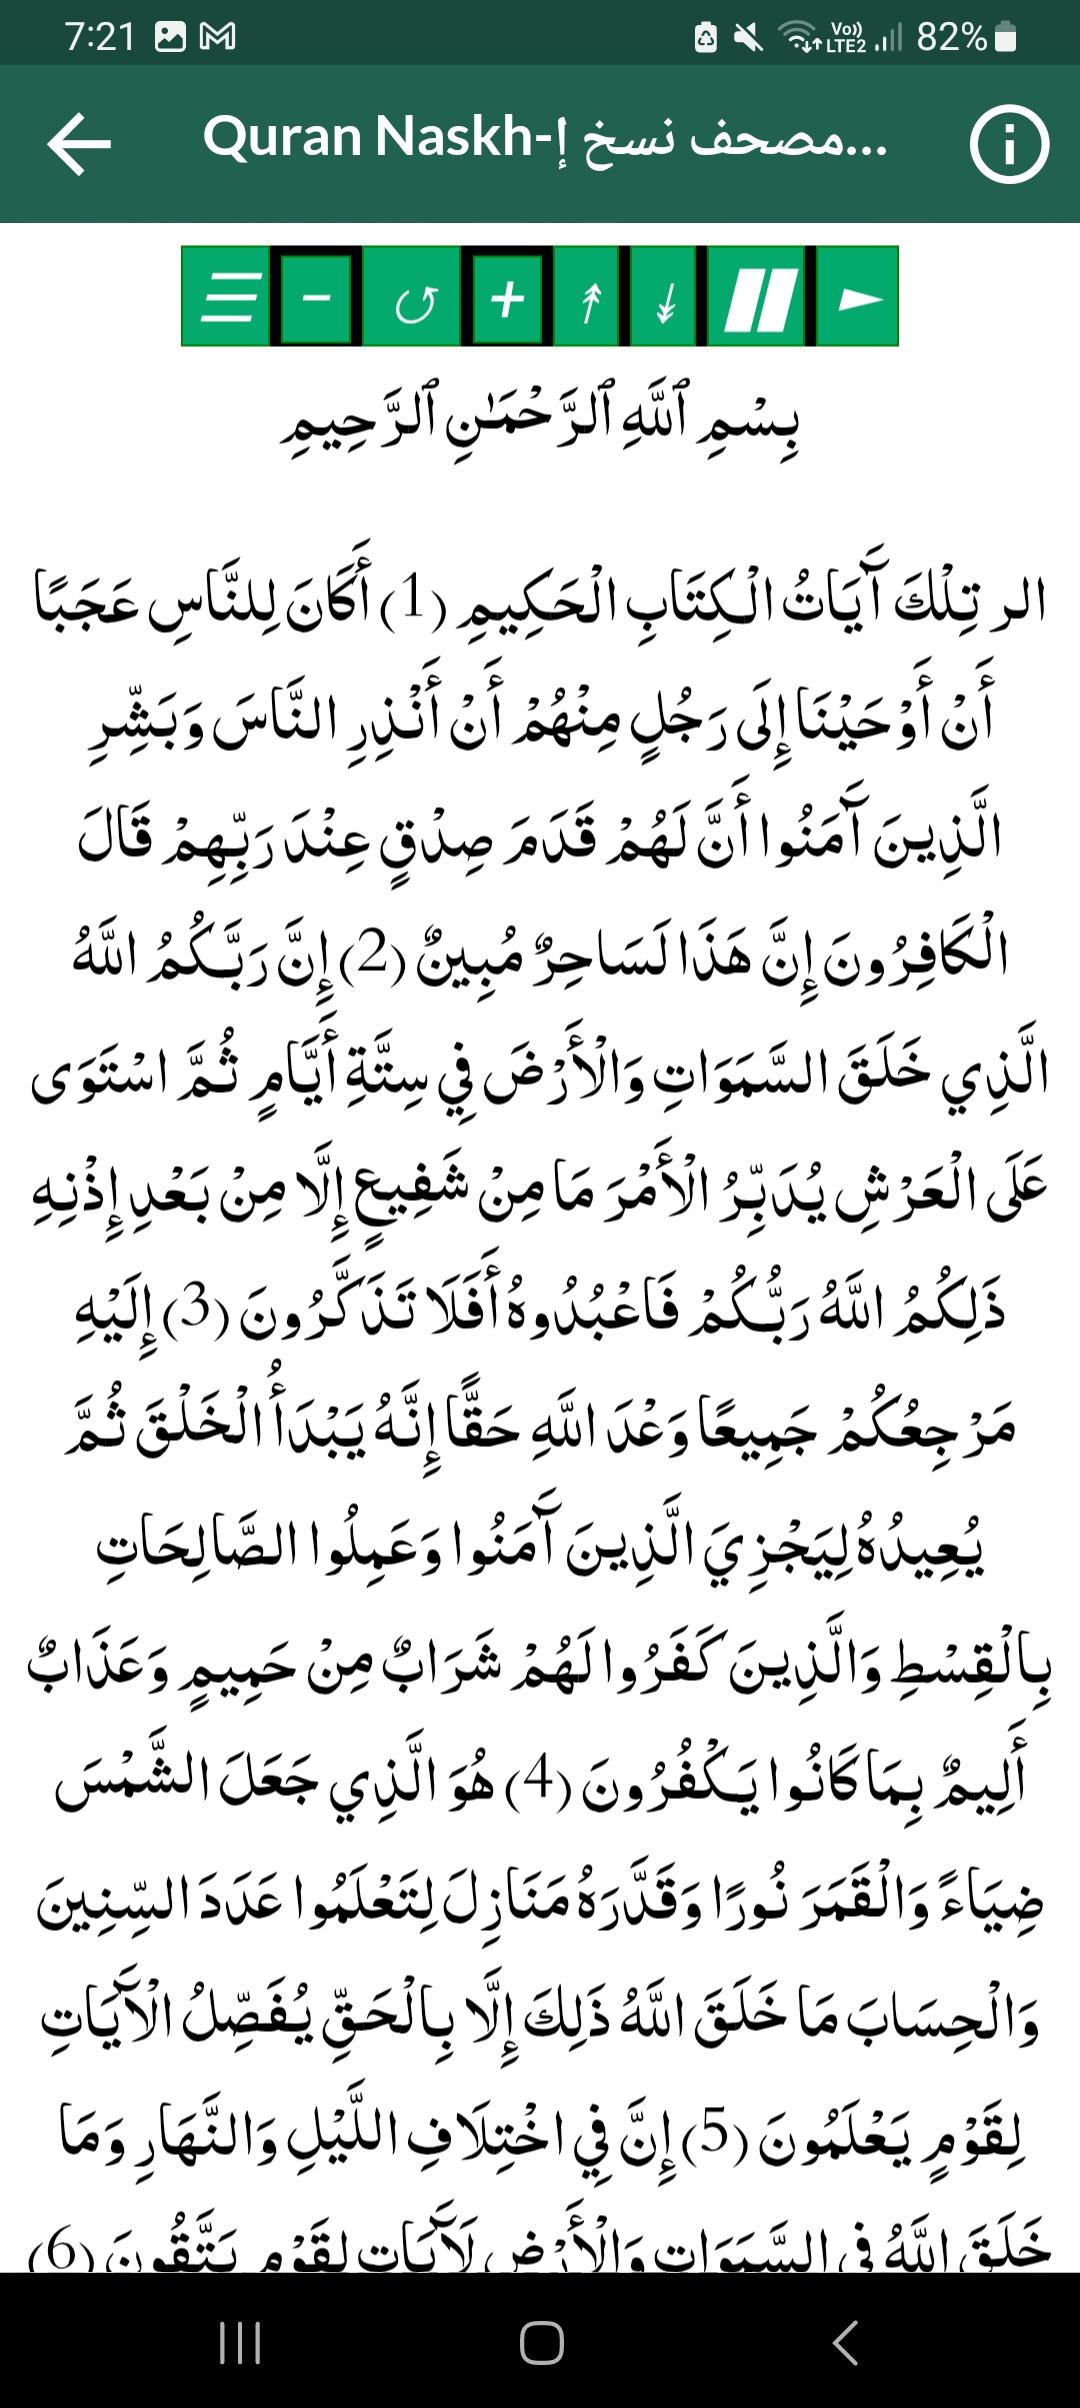 7:21 Vo)) LTE2 82%
Quran Naskh-مصحف نسخ إ...
بِسْمِ ٱللَّهِ ٱلرَّحْمَٰنِ ٱلرَّحِيمِ
الر تِلْكَ آَيَاتُ الْكِتَابِ الْحَكِيمِ (1) أَكَانَ لِلنَّاسِ عَجَبًا
أَنْ أَوْحَيْنَا إِلَى رَجُلٍ مِنْهُمْ أَنْ أَنْذِرِ النَّاسَ وَبَشِّرِ
الَّذِينَ آَمَنُوا أَنَّ لَهُمْ قَدَمَ صِدْقٍ عِنْدَ رَبِّهِمْ قَالَ
الْكَافِرُونَ إِنَّ هَذَا لَسَاحِرٌ مُبِينٌ (2) إِنَّ رَبَّكُمُ اللَّهُ
الَّذِي خَلَقَ السَّمَوَاتِ وَالْأَرْضَ فِي سِتَّةِ أَيَّامٍ ثُمَّ اسْتَوَى
عَلَى الْعَرْشِ يُدَبِّرُ الْأَمْرَ مَا مِنْ شَفِيعٍ إِلَّا مِنْ بَعْدِ إِذْنِهِ
ذَلِكُمُ اللَّهُ رَبُّكُمْ فَاعْبُدُوهُ أَفَلَا تَذَكَّرُونَ (3) إِلَيْهِ
مَرْجِعُكُمْ جَمِيعًا وَعْدَ اللَّهِ حَقًّا إِنَّهُ يَبْدَأُ الْخَلْقَ ثُمَّ
يُعِيدُهُ لِيَجْزِيَ الَّذِينَ آَمَنُوا وَعَمِلُوا الصَّالِحَاتِ
بِالْقِسْطِ وَالَّذِينَ كَفَرُوا لَهُمْ شَرَابٌ مِنْ حَمِيمٍ وَعَذَابٌ
أَلِيمٌ بِمَا كَانُوا يَكْفُرُونَ (4) هُوَ الَّذِي جَعَلَ الشَّمْسَ
ضِيَاءً وَالْقَمَرَ نُورًا وَقَدَّرَهُ مَنَازِلَ لِتَعْلَمُوا عَدَدَ السِّنِينَ
وَالْحِسَابَ مَا خَلَقَ اللَّهُ ذَلِكَ إِلَّا بِالْحَقِّ يُفَصِّلُ الْآَيَاتِ
لِقَوْمٍ يَعْلَمُونَ (5) إِنَّ فِي اخْتِلَافِ اللَّيْلِ وَالنَّهَارِ وَمَا
خَلَقَ اللَّهُ فِي السَّمَوَاتِ وَالْأَرْضِ لَآَيَاتٍ لِقَوْمٍ يَتَّقُونَ (6)